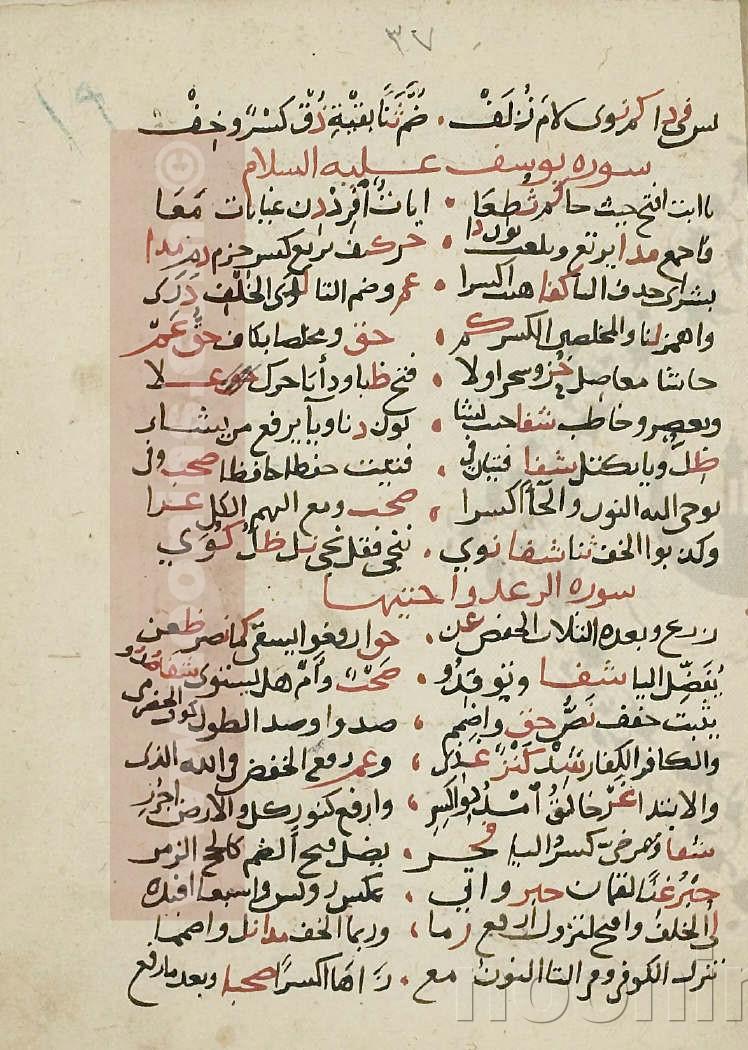 ٣٧
١٩
يس في دا كم نوى لام زلف • ضم ثنا بقية ذق كسر وخف
سوره يوسف عليه السلام
يا ابت افتح حيث جا كم ثطعا • ايات افرد دن غيابات معا
فاجمع مدا يرتع ويلعب نون دا • حز كيف يرتع كسر جزم دم مدا
بشراي حذف اليا كفا هيت اكسرا • عم وضم التا لدى الخلف درى
واهمز لنا والمخلصين الكسر كم • حق ومخلصا بكاف حق عم
حاشا معا صل حز وسجن اولا • فتح ظبا ودأبا حرك علا
ويعصرو خاطب شفا حيث يشا • نون دنا ويا يرفع من يشاء
ظل ويا يكتل شفا فتيان في • فتيت حفظا حافظا صحب وفي
يوحى اليه النون والحا اكسرا • صحب ومع اليهم الكل عرا
وكذبوا الخف ثنا شفا نوي • ننجي فقل نجي نل ظل كوي
سوره الرعد واختيها
زرع وبعده الثلاث الخفض عن • حق ارفعوا يسقى كما نصر ظعن
يفضل اليا شفا ويوقدو • صحب وام هل يستوى شفا صدو
يثبت خفف نص حق واضمم • صدوا وصد الطول كوف الحضرمي
والكافر الكفار شد كنز غذي • وعم رفع الخفض في الله الذى
والابتدا غر خالق امدد واكسر • وارفع كنور كل والارض اجرر
شفا ومصرخي كسر اليا فخر • يضل فتح الضم كالحج الزمر
حبر غنا لقمان حبر واتي • عكس رويس واشبعا افئده
لي الخلف وافتح لتزول ارفع رما • وربما الخف مدا نل واضمما
تنزل الكوفي وفي التا النون مع • زاها اكسرا صحبا وبعد ما رفع